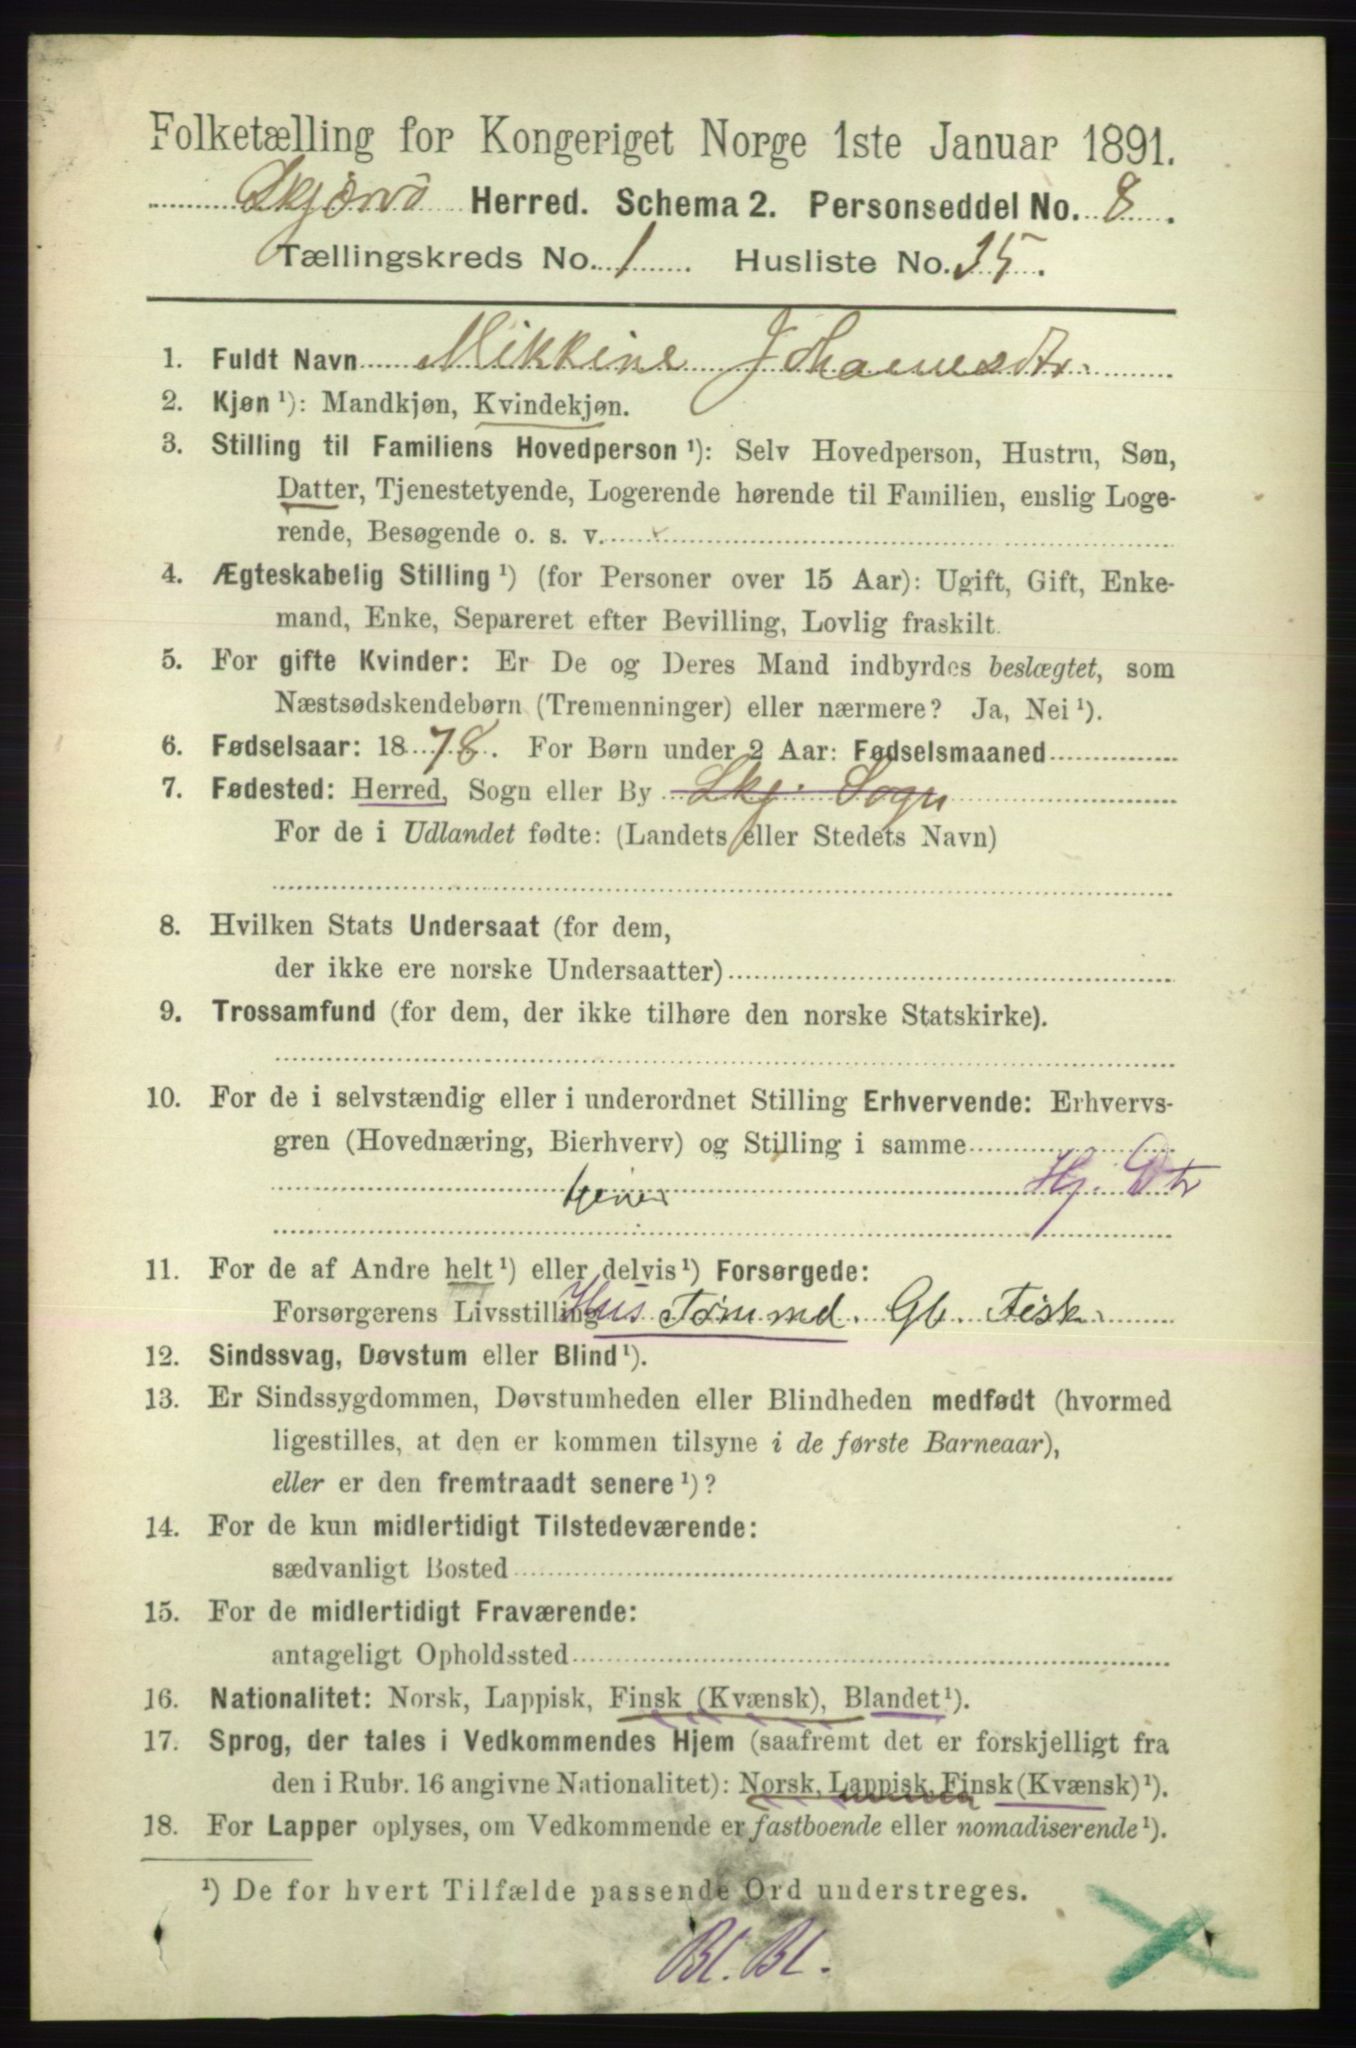 Folketælling for Kongeriget Norge 1ste Januar 1891.
Skjærvö Herred. Schema 2. Personseddel No. 8.
Tællingskreds No. 1 Husliste No. 35.
1. Fuldt Navn Mikkine Johannesdtr
2. Kjøn ¹): Mandkjøn, Kvindekjøn.
3. Stilling til Familiens Hovedperson ¹): Selv Hovedperson, Hustru, Søn,
Datter, Tjenestetyende, Logerende hørende til Familien, enslig Loge-
rende, Besøgende o. s. v.
4. Ægteskabelig Stilling ¹) (for Personer over 15 Aar): Ugift, Gift, Enke-
mand, Enke, Separeret efter Bevilling, Lovlig fraskilt.
5. For gifte Kvinder: Er De og Deres Mand indbyrdes beslægtet, som
Næstsødskendebørn (Tremenninger) eller nærmere? Ja, Nei ¹).
6. Fødselsaar: 1878. For Børn under 2 Aar: Fødselsmaaned
7. Fødested: Herred, Sogn eller By Skj. Sogn
For de i Udlandet fødte: (Landets eller Stedets Navn)
8. Hvilken Stats Undersaat (for dem,
der ikke ere norske Undersaatter)
9. Trossamfund (for dem, der ikke tilhøre den norske Statskirke).
10. For de i selvstændig eller i underordnet Stilling Erhvervende: Erhvervs-
gren (Hovednæring, Bierhverv) og Stilling i samme
Hj. Dtr
11. For de af Andre helt ¹) eller delvis ¹) Forsørgede:
Forsørgerens Livsstilling Hus Tømmd. Gb. Fisk.
12. Sindssvag, Døvstum eller Blind ¹).
13. Er Sindssygdommen, Døvstumheden eller Blindheden medfødt (hvormed
ligestilles, at den er kommen tilsyne i de første Barneaar),
eller er den fremtraadt senere ¹)?
14. For de kun midlertidigt Tilstedeværende:
sædvanligt Bosted
15. For de midlertidigt Fraværende:
antageligt Opholdssted
16. Nationalitet: Norsk, Lappisk, Finsk (Kvænsk), Blandet ¹).
17. Sprog, der tales i Vedkommendes Hjem (saafremt det er forskjelligt fra
den i Rubr. 16 angivne Nationalitet): Norsk, Lappisk, Finsk (Kvænsk) ¹).
18. For Lapper oplyses, om Vedkommende er fastboende eller nomadiserende ¹).
¹) De for hvert Tilfælde passende Ord understreges.
Bl. Bl.